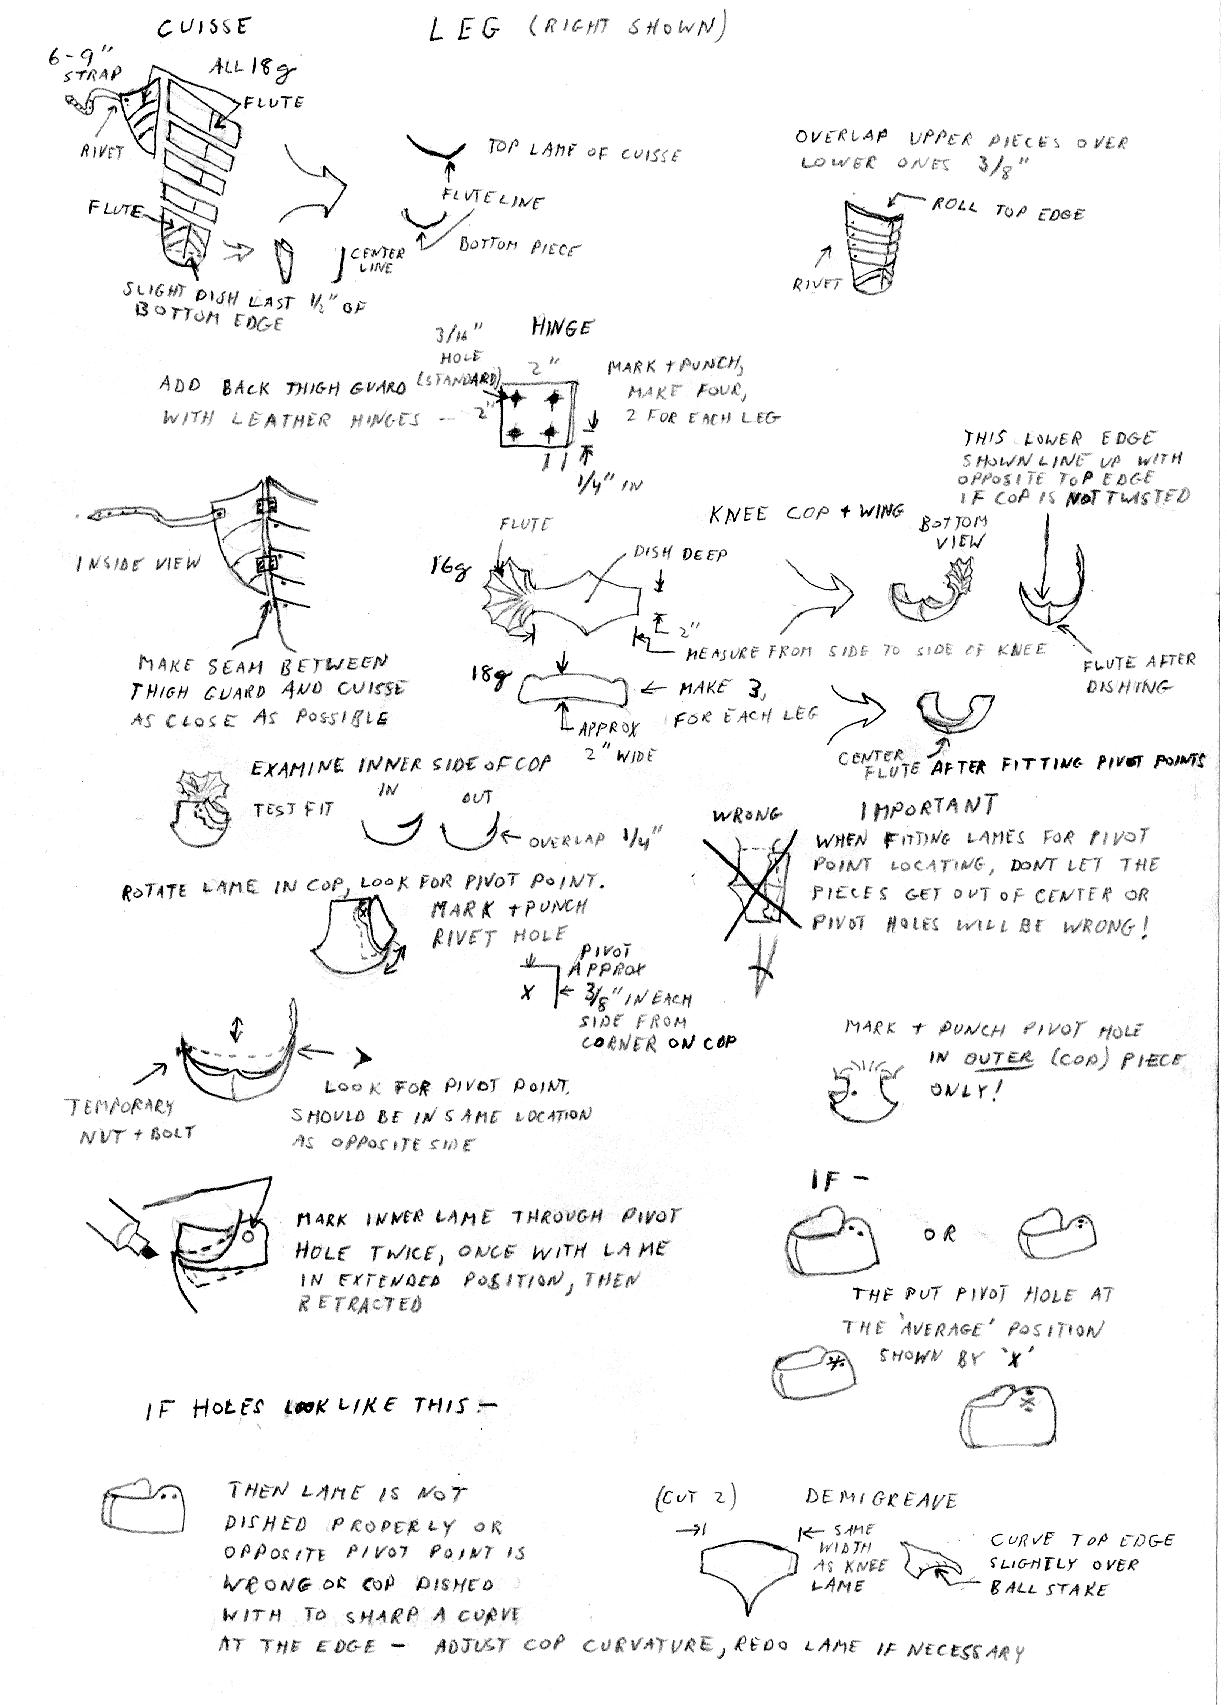 CUISSE
LEG (RIGHT SHOWN)
6-9"
STRAP
ALL 18g
FLUTE
RIVET
FLUTE
SLIGHT DISH LAST 1/2" OF
BOTTOM EDGE
TOP LAME OF CUISSE
FLUTE LINE
BOTTOM PIECE
CENTER
LINE
OVERLAP UPPER PIECES OVER
LOWER ONES 3/8"
ROLL TOP EDGE
RIVET
HINGE
3/16"
HOLE
(STANDARD)
2"
2"
ADD BACK THIGH GUARD
WITH LEATHER HINGES -
MARK + PUNCH,
MAKE FOUR,
2 FOR EACH LEG
1/4" IN
INSIDE VIEW
MAKE SEAM BETWEEN
THIGH GUARD AND CUISSE
AS CLOSE AS POSSIBLE
KNEE COP + WING
16g
FLUTE
DISH DEEP
2"
MEASURE FROM SIDE TO SIDE OF KNEE
BOTTOM
VIEW
THIS LOWER EDGE
SHOWN LINE UP WITH
OPPOSITE TOP EDGE
IF COP IS NOT TWISTED
FLUTE AFTER
DISHING
18g
MAKE 3,
FOR EACH LEG
APPROX
2" WIDE
CENTER
FLUTE AFTER FITTING PIVOT POINTS
EXAMINE INNER SIDE OF COP
TEST FIT
IN
OUT
OVERLAP 1/4"
ROTATE LAME IN COP, LOOK FOR PIVOT POINT.
MARK + PUNCH
RIVET HOLE
PIVOT
APPROX
X
3/8" IN EACH
SIDE FROM
CORNER ON COP
WRONG
IMPORTANT
WHEN FITTING LAMES FOR PIVOT
POINT LOCATING, DONT LET THE
PIECES GET OUT OF CENTER OR
PIVOT HOLES WILL BE WRONG!
TEMPORARY
NUT + BOLT
LOOK FOR PIVOT POINT.
SHOULD BE IN SAME LOCATION
AS OPPOSITE SIDE
MARK + PUNCH PIVOT HOLE
IN OUTER (COP) PIECE
ONLY!
MARK INNER LAME THROUGH PIVOT
HOLE TWICE, ONCE WITH LAME
IN EXTENDED POSITION, THEN
RETRACTED
IF -
OR
THE PUT PIVOT HOLE AT
THE 'AVERAGE' POSITION
SHOWN BY 'X'
IF HOLES LOOK LIKE THIS :-
THEN LAME IS NOT
DISHED PROPERLY OR
OPPOSITE PIVOT POINT IS
WRONG OR COP DISHED
WITH TO SHARP A CURVE
AT THE EDGE - ADJUST COP CURVATURE, REDO LAME IF NECESSARY
(CUT 2)
DEMIGREAVE
SAME
WIDTH
AS KNEE
LAME
CURVE TOP EDGE
SLIGHTLY OVER
BALL STAKE